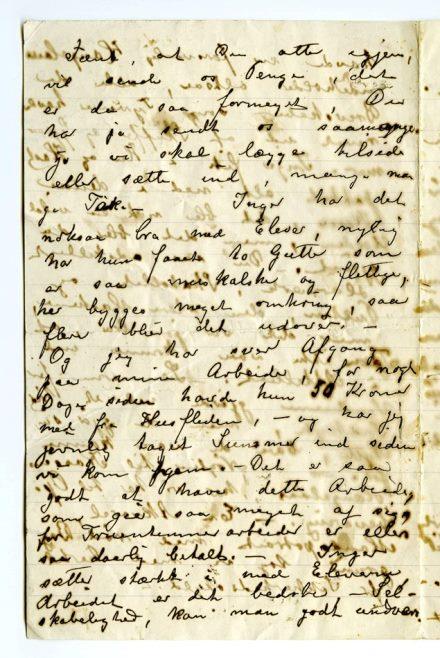 Tænk, at Du atter igjen,
vil sende os Penge, det
er da saa formeget, Du
har jo sendt os saamange
Jo vi skal lægge tilside
eller sætte ind, mang man
ge Tak. — Inger har det
noksaa bra med Elever, nylig
har hun faaet to Gutter som
er saa musikalske og flittige,
her bygges meget omkring, saa
flere blir det udover. —
Og jeg har svær Afgang
paa mine Arbeider, for nogle
Dage siden havde hun 50 Kroner
med fra Husfliden, — og har jeg
jevnlig taget Summer ind siden
vi kom hjem. — Det er saa
godt at have dette Arbeide,
som giør saa meget af sig,
for Fruentimmerarbeider er ellers
saa daarlig betalt. — Inger
sætter stærkt i med Eleverne
Arbeidet er det bedste — Sel-
skabelighed, kan man godt undvære.